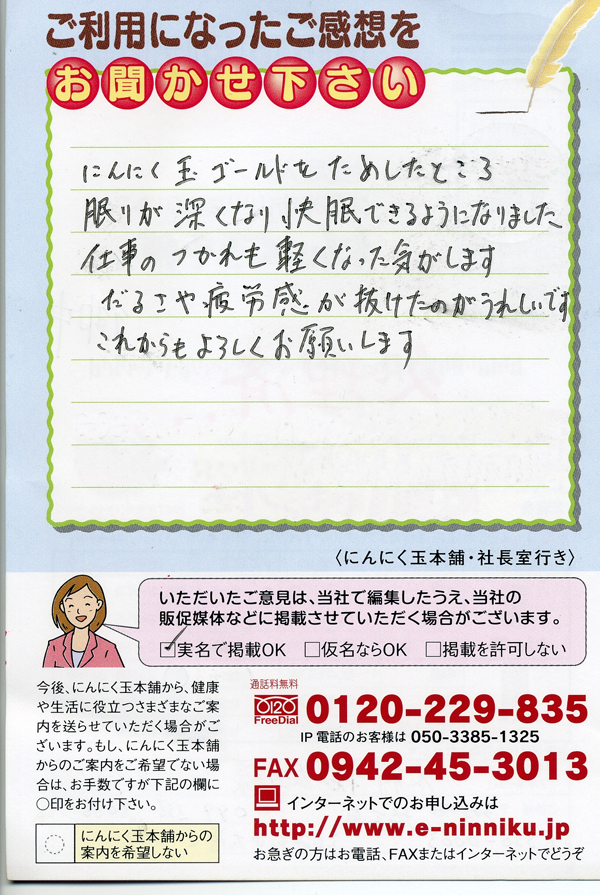 ご利用になったご感想を
お聞かせ下さい
にんにく玉ゴールドをためしたところ
眠りが深くなり快眠できるようになりました
仕事のつかれも軽くなった気がします
だるさや疲労感が抜けたのがうれしいです
これからもよろしくお願いします
〈にんにく玉本舗・社長室行き〉
いただいたご意見は、当社で編集したうえ、当社の
販促媒体などに掲載させていただく場合がございます。
☑実名で掲載OK □仮名ならOK □掲載を許可しない
今後、にんにく玉本舗から、健康
や生活に役立つさまざまなご案
内を送らせていただく場合がご
ざいます。もし、にんにく玉本舗
からのご案内をご希望でない場
合は、お手数ですが下記の欄に
○印をお付け下さい。
にんにく玉本舗からの
案内を希望しない
通話料無料
FreeDial 0120-229-835
IP電話のお客様は 050-3385-1325
FAX 0942-45-3013
インターネットでのお申し込みは
http://www.e-ninniku.jp
お急ぎの方はお電話、FAXまたはインターネットでどうぞ